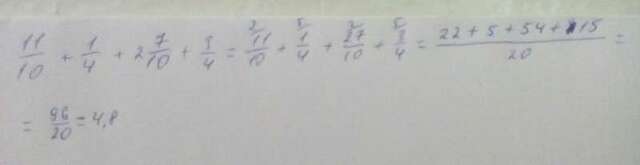 11/10 + 1/4 + 2 7/10 + 3/4 = 2 11/10 + 5 1/4 + 2 27/10 + 5 3/4 = (22 + 5 + 54 + 15)/20 =
= 96/20 = 4,8